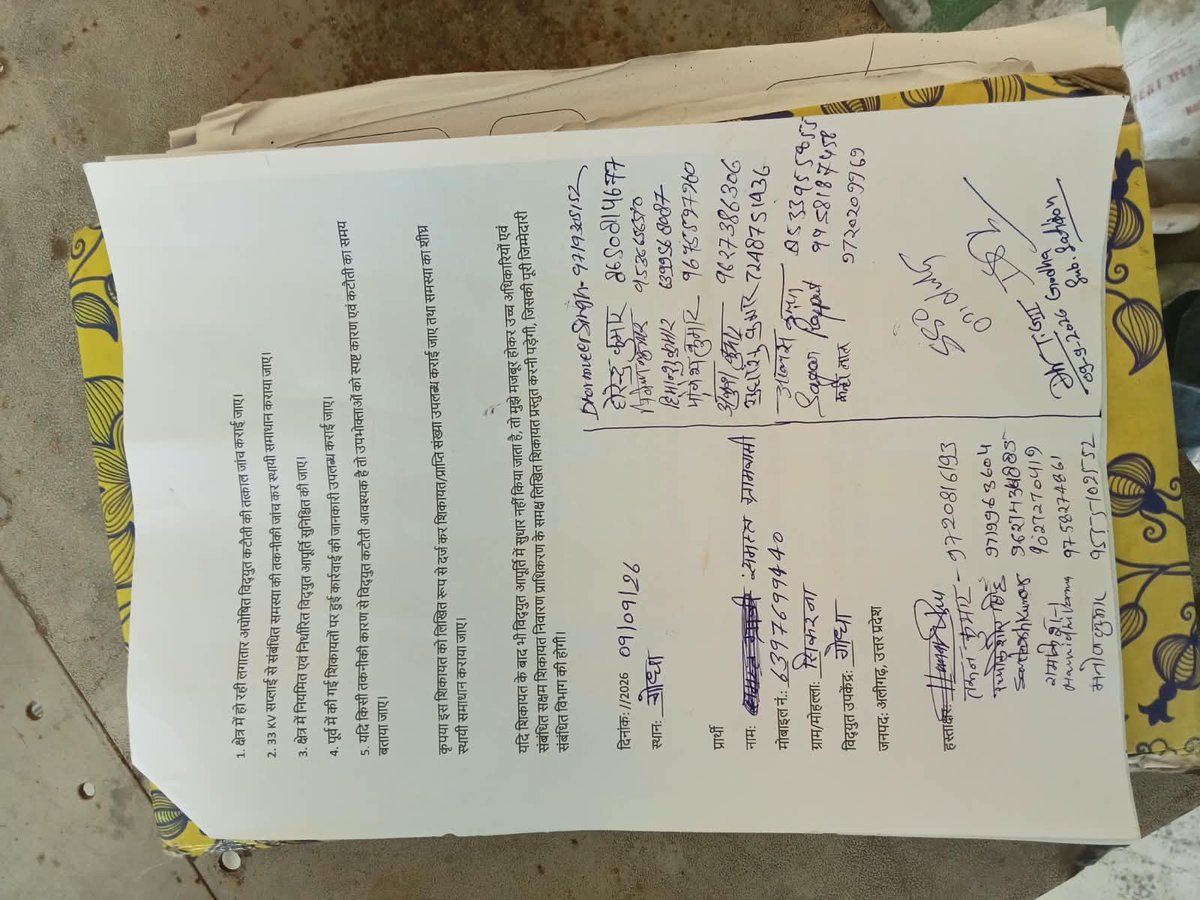 1. क्षेत्र में हो रही लगातार अघोषित विद्युत कटौती की तत्काल जांच कराई जाए।
2. 33 KV सप्लाई से संबंधित समस्या की तकनीकी जांच कर स्थायी समाधान कराया जाए।
3. क्षेत्र में नियमित एवं निर्धारित विद्युत आपूर्ति सुनिश्चित की जाए।
4. पूर्व में की गई शिकायतों पर हुई कार्रवाई की जानकारी उपलब्ध कराई जाए।
5. यदि किसी तकनीकी कारण से विद्युत कटौती आवश्यक है तो उपभोक्ताओं को स्पष्ट कारण एवं कटौती का समय
बताया जाए।
कृपया इस शिकायत को लिखित रूप से दर्ज कर शिकायत/प्राप्ति संख्या उपलब्ध कराई जाए तथा समस्या का शीघ्र
स्थायी समाधान कराया जाए।
यदि शिकायत के बाद भी विद्युत आपूर्ति में सुधार नहीं किया जाता है, तो मुझे मजबूर होकर उच्च अधिकारियों एवं
संबंधित सक्षम शिकायत निवारण प्राधिकरण के समक्ष लिखित शिकायत प्रस्तुत करनी पड़ेगी, जिसकी पूरी जिम्मेदारी
संबंधित विभाग की होगी।
दिनांक: //2026 09/09/26
स्थान: गोधा
प्रार्थी
नाम: समस्त ग्रामवासी
मोबाइल नं.: 6397699440
ग्राम/मोहल्ला: सिकरना
विद्युत उपकेंद्र: गोधा
जनपद: अलीगढ़, उत्तर प्रदेश
हस्ताक्षर:
कुमार - 9720816193
सिंह 9719963604
Santosh Kumar
9758274861
मनोज कुमार 9555109552
Dharmveer Singh - 9719305152
कुमार 8650014677
कुमार
हिमांशु कुमार
योगेश कुमार 9675597960
अंकुश कुमार 9627386306
सुधांशु कुमार 7248751436
Sagar Rajput
9720209969
09-9-2026 Godha
Sub. Station